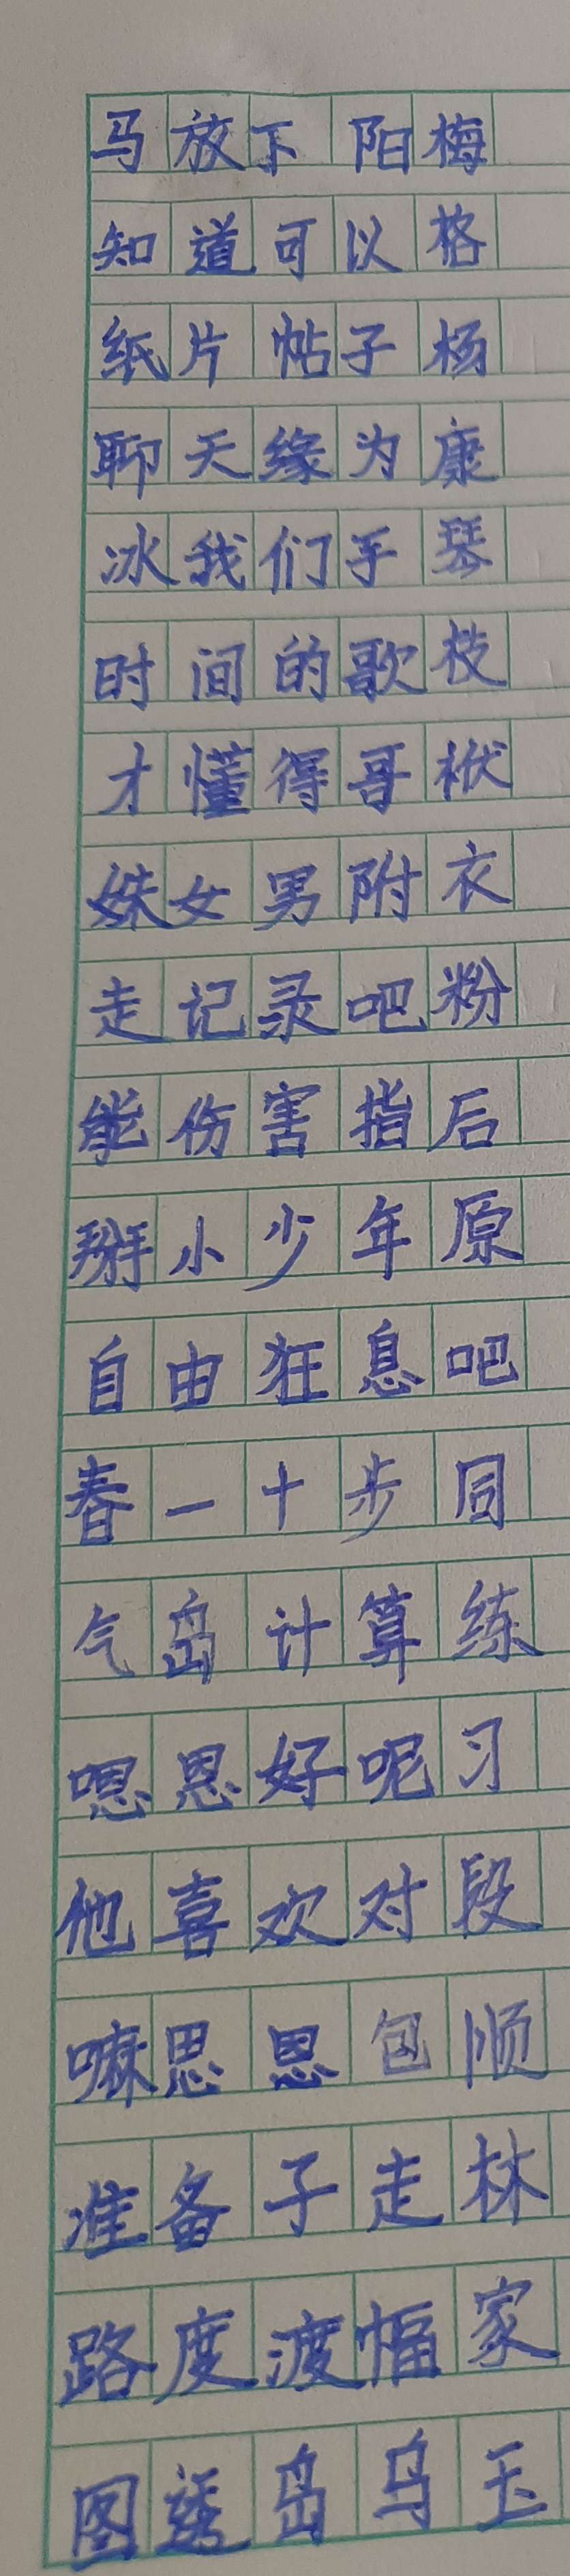 马放下阳梅
知道可以格
纸片帖子杨
聊天缘为康
冰我们手琴
时间的歌枝
才懂得哥
姝女男附衣
走记录吧粉
能伤害指后
掰小少年原
自由狂息吧
春一十步同
气岛计算练
嗯恩好呢习
他喜欢对段
嘛思恩包顺
准备子走林
路度渡幅家
图透岛乌玉